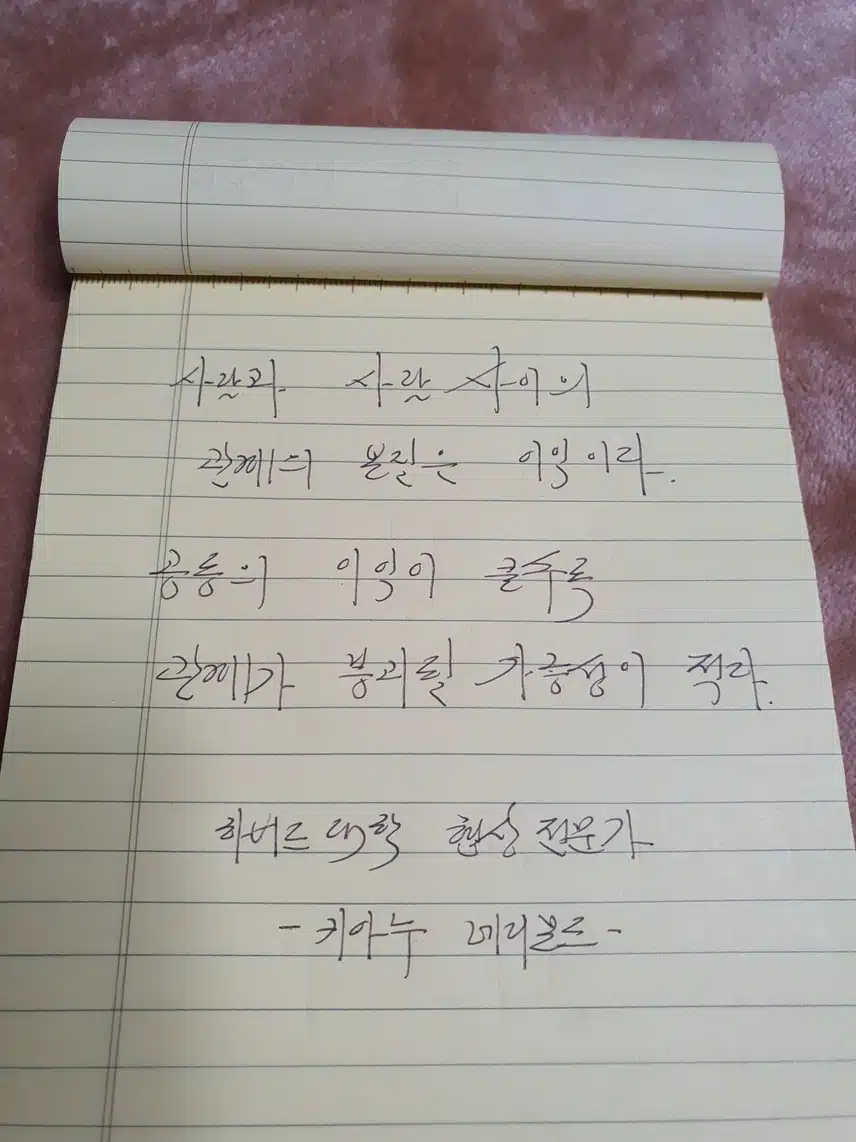 사람과 사람 사이의
관계의 본질은 이익이다.
공동의 이익이 클수록
관계가 붕괴될 가능성이 적다.
하버드 대학 협상 전문가
- 키아누